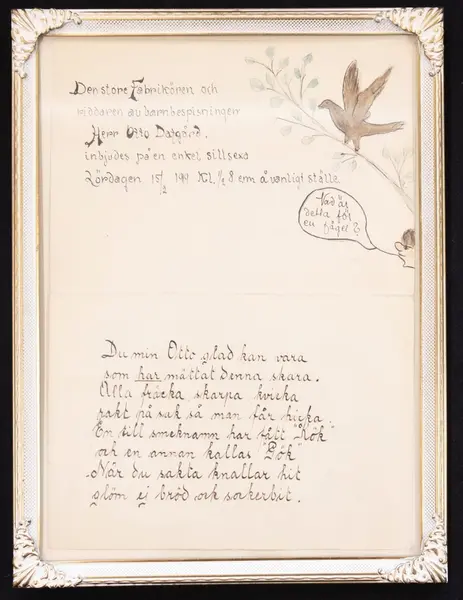 Den store Fabrikören och
riddaren av barnbespisningen
Herr Otto Dalgård,
inbjudes på en enkel sillsexa
Lördagen 15/2 Kl. ½ 8 em å vanligt ställe
Vad är
detta för
en fågel?
Du min Otto glad kan vara
som har mättat denna skara.
Alla fräcka skarpa kvicka
rakt på sak så man får hicka.
En till smeknamn har fått "Rök"
och en annan kallas "Gök"
När du sakta knallar hit
glöm ej bröd och sockerbit.